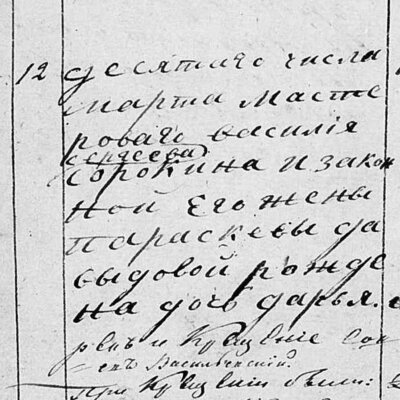 12 десятаго числа
марта Масте
роваго василія
сергеева
сорокина и закон
ной Его жены
параскевы да
выдовой рожде
на дочь дарья.
и Крещеніе
при Крещеніи были: